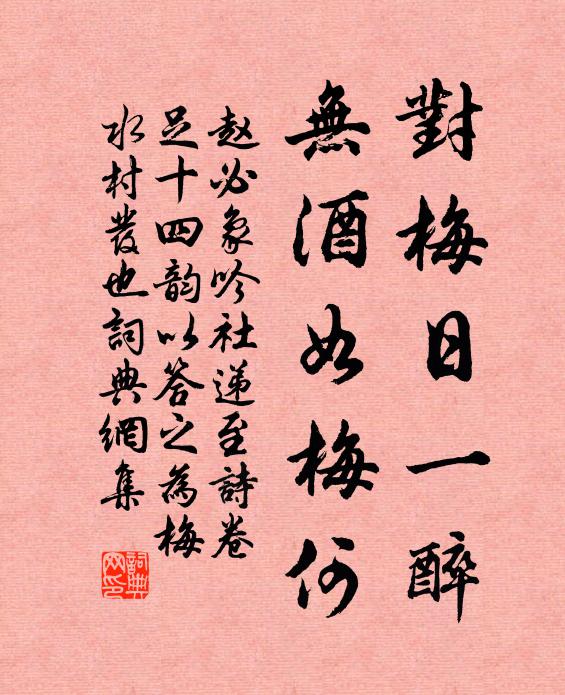 對梅日一醉
無酒如梅何
赵必象吟社递至詩卷
足十四韵以答之為梅
水村發也詞典網集
詞典网印